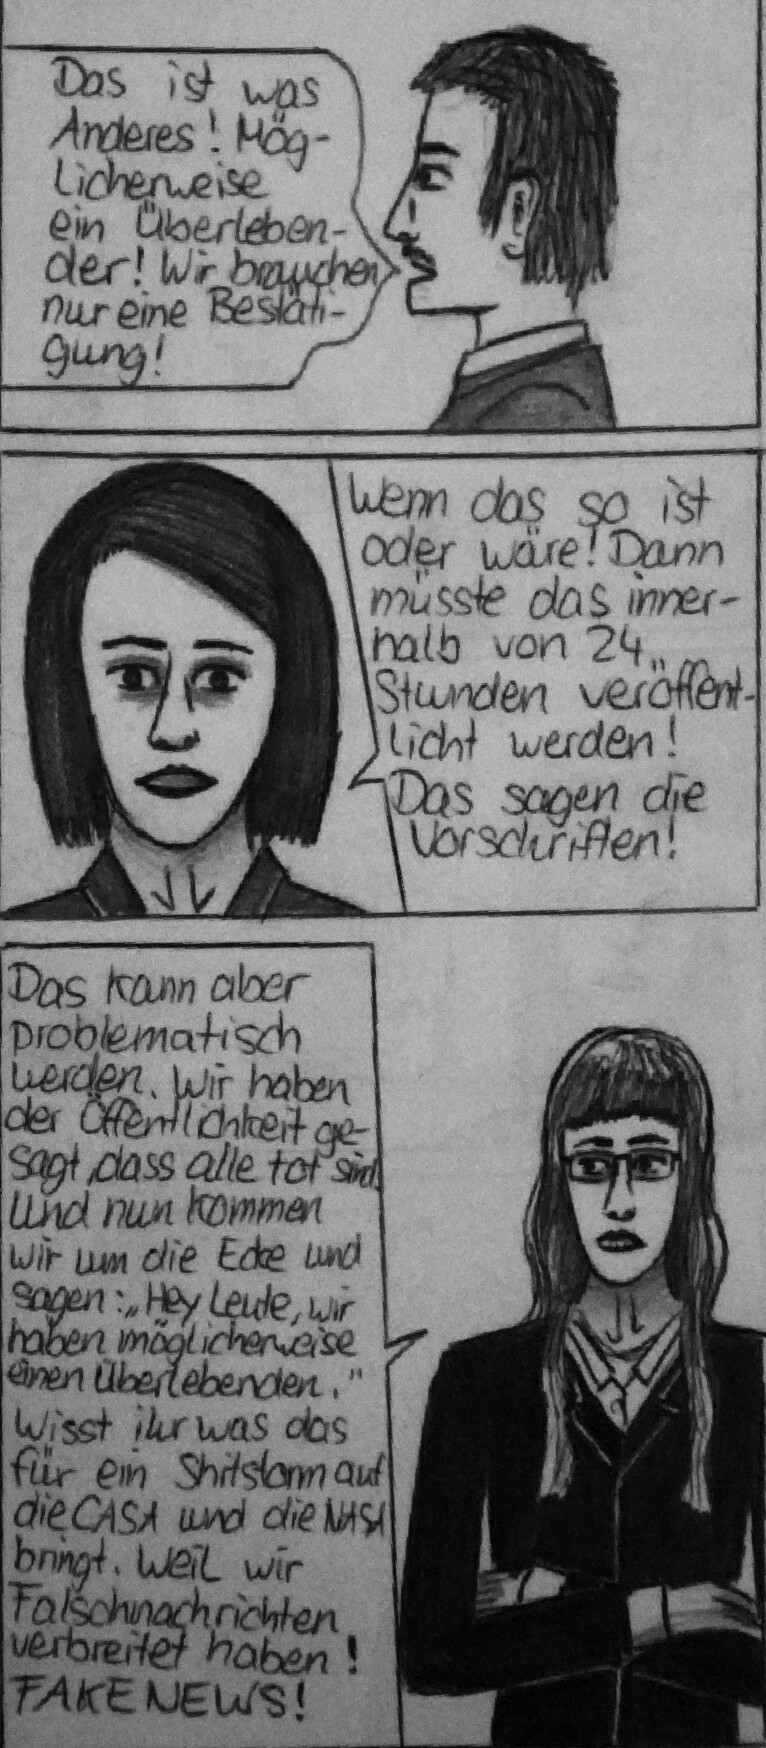 Das ist was
Anderes! Mög-
licherweise
ein Überleben-
der! Wir brauchen
nur eine Bestäti-
gung!
Wenn das so ist
oder wäre! Dann
müsste das inner-
halb von 24
Stunden veröffent-
licht werden!
Das sagen die
Vorschriften!
Das kann aber
problematisch
werden. Wir haben
der Öffentlichkeit ge-
sagt, dass alle tot sind.
Und nun kommen
wir um die Ecke und
sagen: „Hey Leute, wir
haben möglicherweise
einen Überlebenden."
Wisst ihr was das
für ein Shitstorm auf
die CASA und die NASA
bringt. Weil wir
Falschnachrichten
verbreitet haben!
FAKE NEWS!